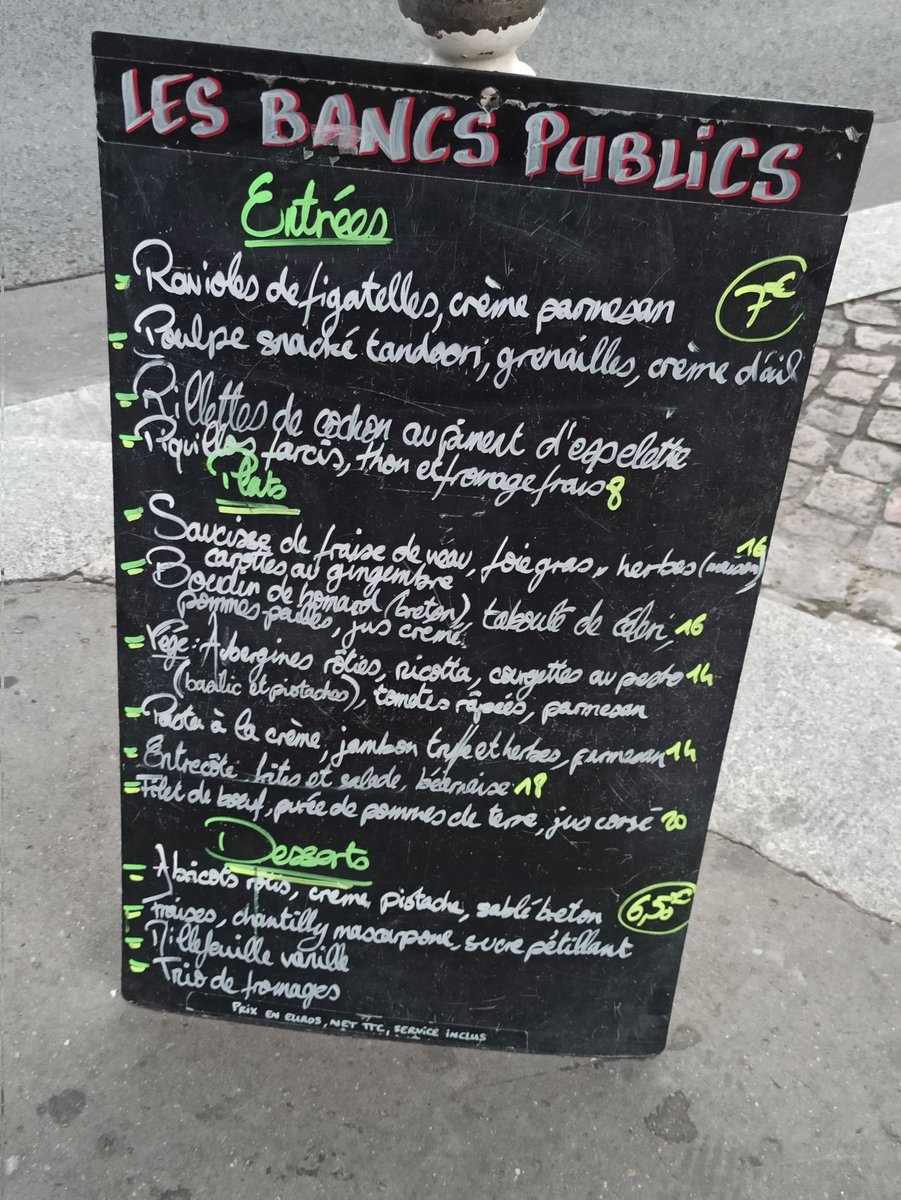 LES BANCS PUBLICS
Entrées
- Ravioles de figatelles, crème parmesan 7€
- Poulpe snacké tandoori, grenailles, crème d'ail
- Rillettes de cochon au piment d'espelette
- Piquillos farcis, thon et fromage frais 8
Plats
- Saucisse de fraise de veau, foie gras, herbes (maison) 16
carottes au gingembre
- Boudin de homard (breton), taboulé de céleri, 16
pommes pailles, jus crémé
- Vege: Aubergines rôties, ricotta, courgettes au pesto 14
(basilic et pistaches), tomates râpées, parmesan
- Pasta à la crème, jambon truffe et herbes, parmesan 14
- Entrecôte frites et salade, béarnaise 18
- Filet de boeuf, purée de pommes de terre, jus corsé 20
Desserts
- Abricots rôtis, crème pistache, sablé breton 6,50€
- Fraises, chantilly mascarpone, sucre pétillant
- Millefeuille vanille
- Trio de fromages
PRIX EN EUROS, NET TTC, SERVICE INCLUS